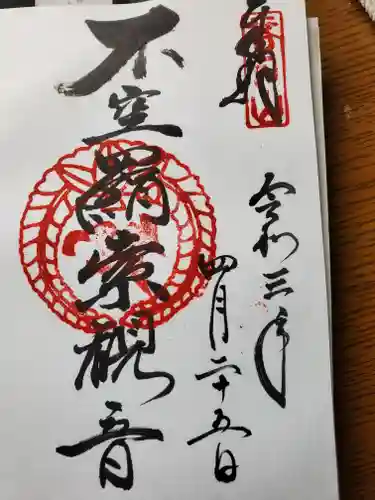 奉拝
令和三年
四月二十五日
不空羂索観音